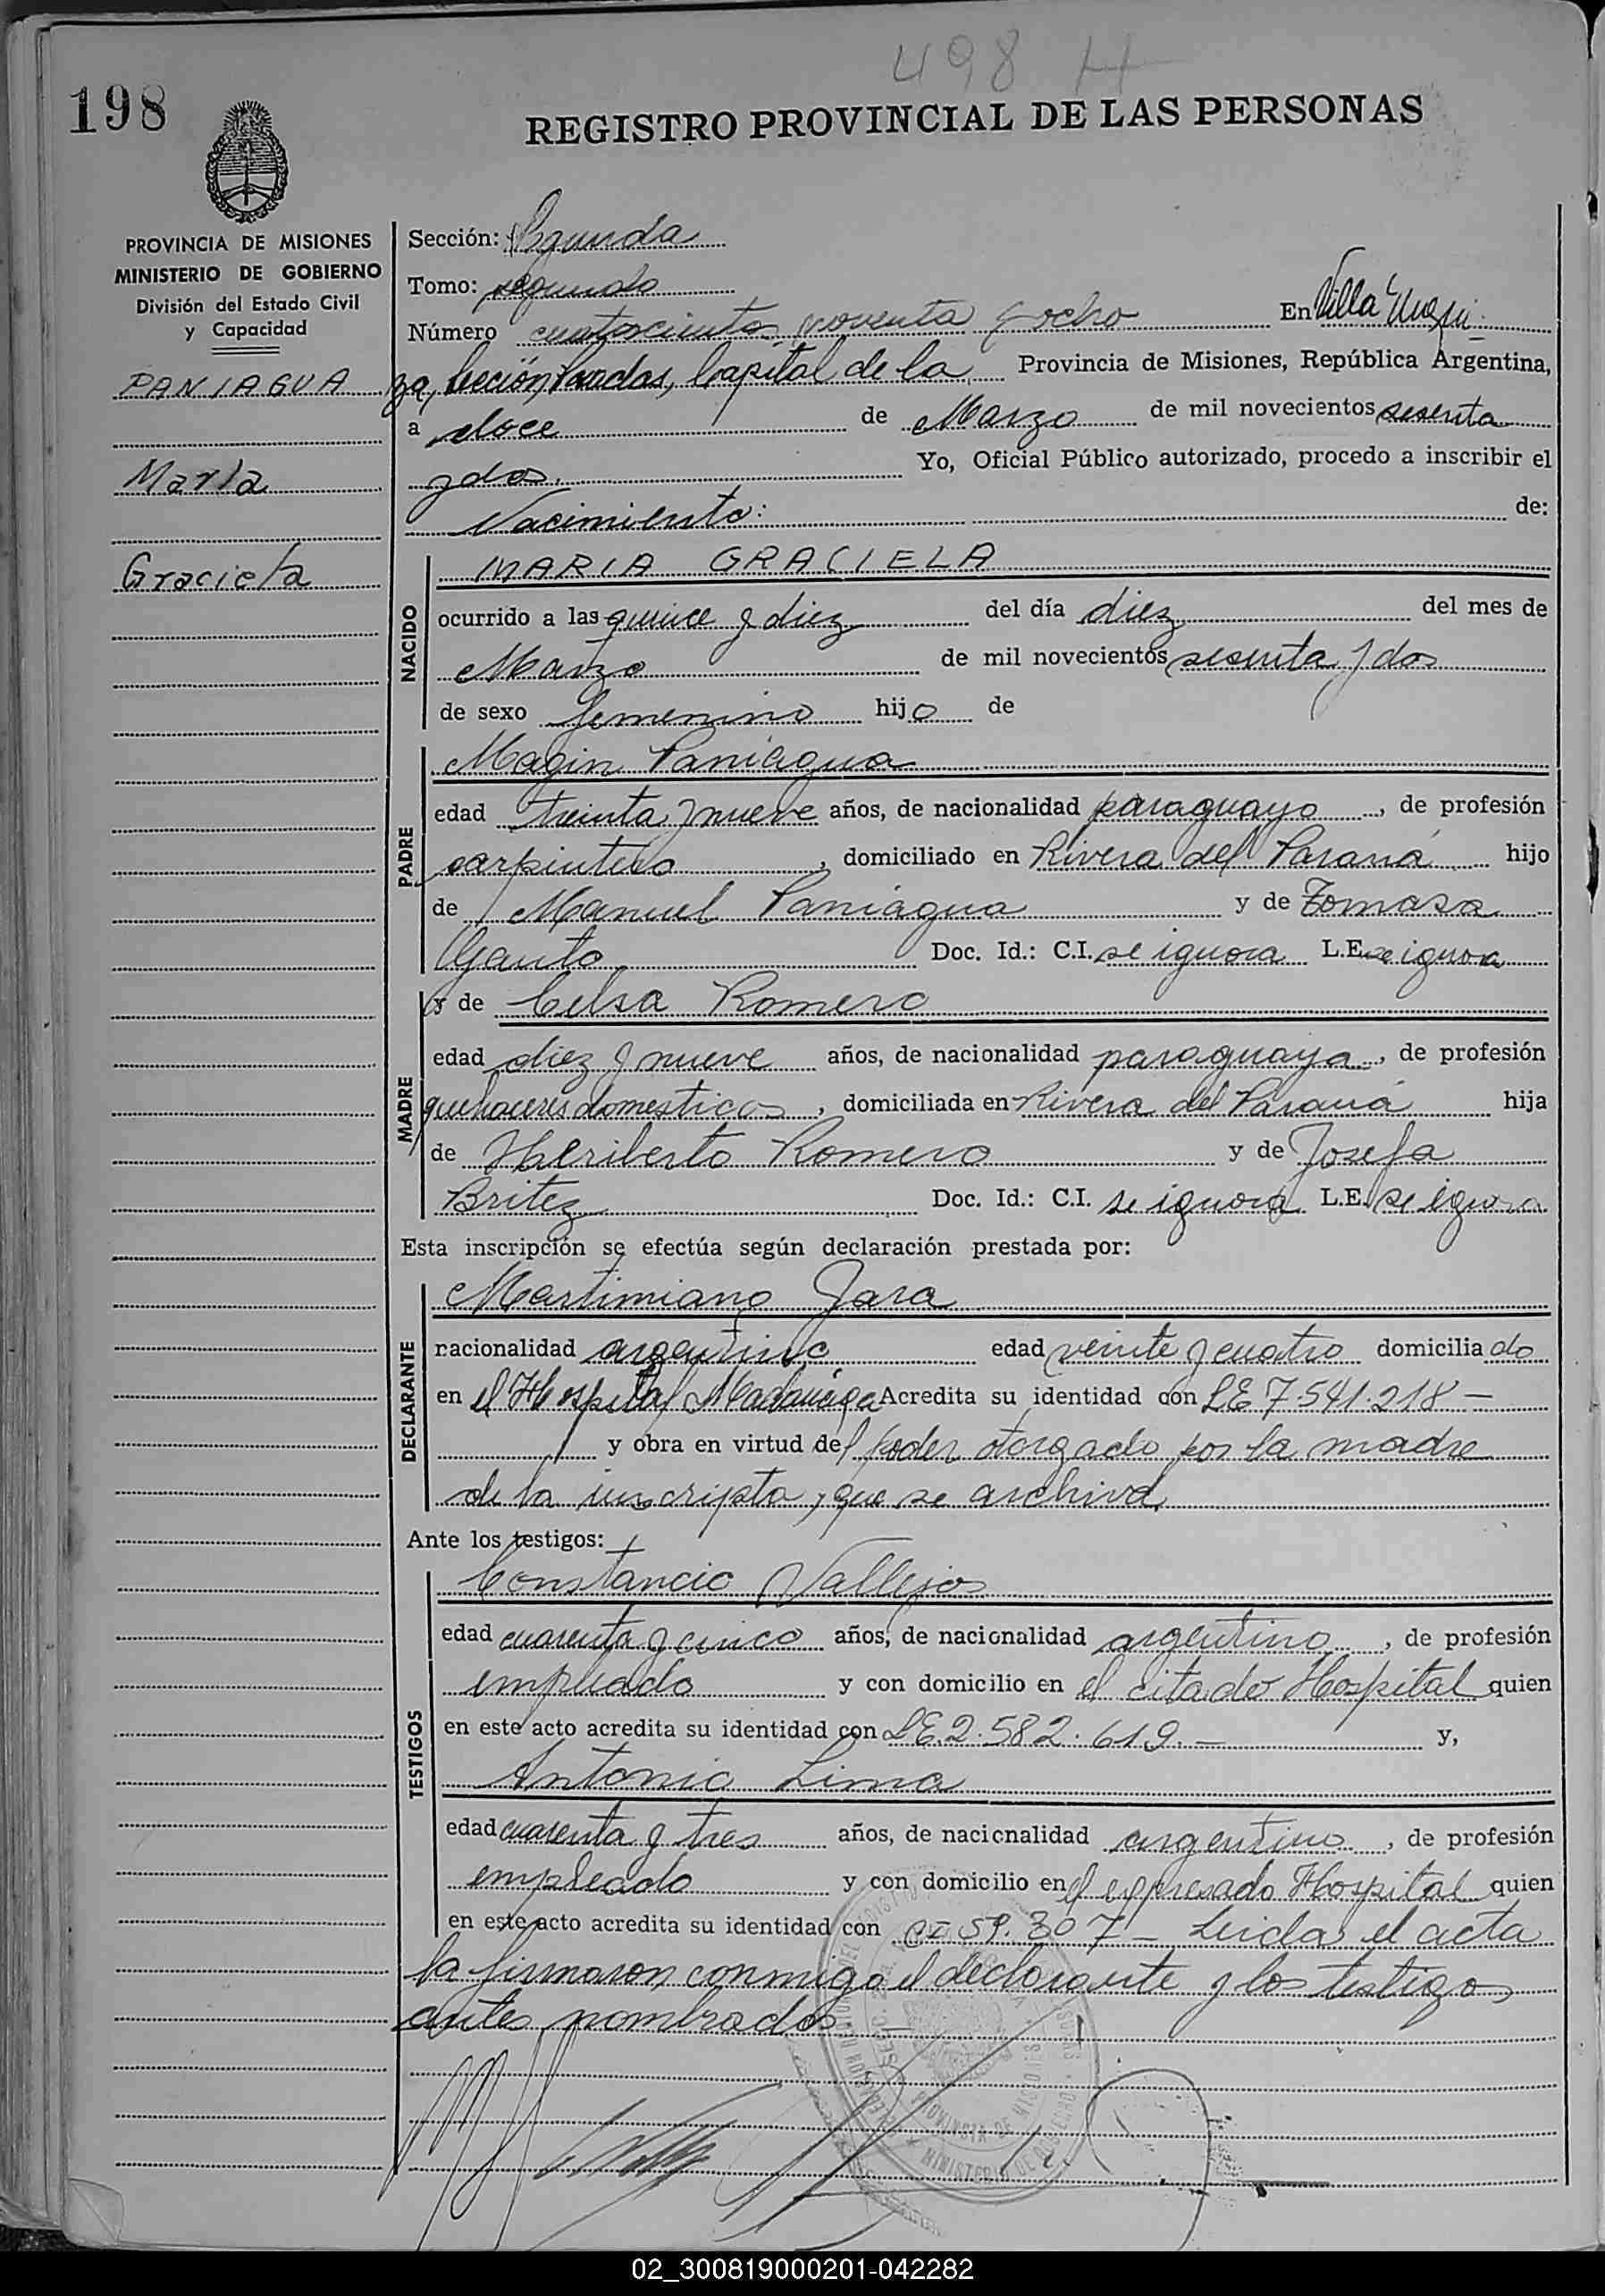 498 H
198
REGISTRO PROVINCIAL DE LAS PERSONAS
PROVINCIA DE MISIONES
MINISTERIO DE GOBIERNO
División del Estado Civil
y Capacidad
PANIAGUA
María
Graciela
Sección: Segunda
Tomo: segundo
Número cuatrocientos noventa y ocho En Villa Urqui-
za, Sección Posadas, Capital de la Provincia de Misiones, República Argentina,
a doce de Marzo de mil novecientos sesenta
y dos. Yo, Oficial Público autorizado, procedo a inscribir el
Nacimiento: de:
NACIDO
MARIA GRACIELA
ocurrido a las quince y diez del día diez del mes de
Marzo de mil novecientos sesenta y dos
de sexo femenino hijo de
PADRE
Magin Paniagua
edad treinta y nueve años, de nacionalidad paraguayo, de profesión
carpintero, domiciliado en Rivera del Paraná hijo
de Manuel Paniagua y de Tomasa
Gauto Doc. Id.: C.I. se ignora L.E. se ignora
MADRE
y de Celsa Romero
edad diez y nueve años, de nacionalidad paraguaya, de profesión
quehaceres domesticos, domiciliada en Rivera del Paraná hija
de Heriberto Romero y de Josefa
Britez Doc. Id.: C.I. se ignora L.E. se ignora
Esta inscripción se efectúa según declaración prestada por:
DECLARANTE
Martimiano Jara
nacionalidad argentino edad veinte y cuatro domiciliado
en el Hospital Madariaga Acredita su identidad con LE 7.541.218 —
y obra en virtud del poder otorgado por la madre
de la inscripta, que se archiva.
Ante los testigos:
TESTIGOS
Constancio Vallejos
edad cuarenta y cinco años, de nacionalidad argentino, de profesión
empleado y con domicilio en el citado Hospital quien
en este acto acredita su identidad con LE.2.582.619.— y,
Antonio Lima
edad cuarenta y tres años, de nacionalidad argentino, de profesión
empleado y con domicilio en el expresado Hospital quien
en este acto acredita su identidad con CI 59.307 — Leida el acta
la firmaron conmigo el declarante y los testigos
antes nombrados —
PROVINCIA DE MISIONES
02_300819000201-042282